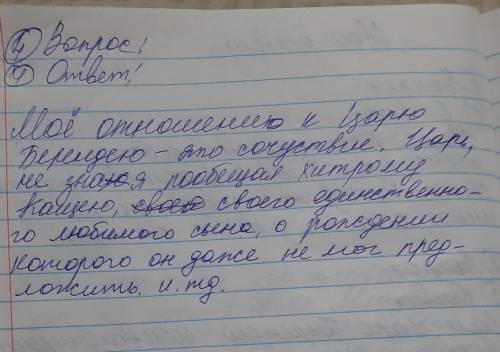 4) Вопрос!
4) Ответ!
Моё отношению к Царю
Берендею - это сочуствие. Царь,
не зная пообещал хитрому
Кащею, своего своего единственно-
го любимого сына, о рождении
которого он даже не мог пред-
ложить. и.тд.